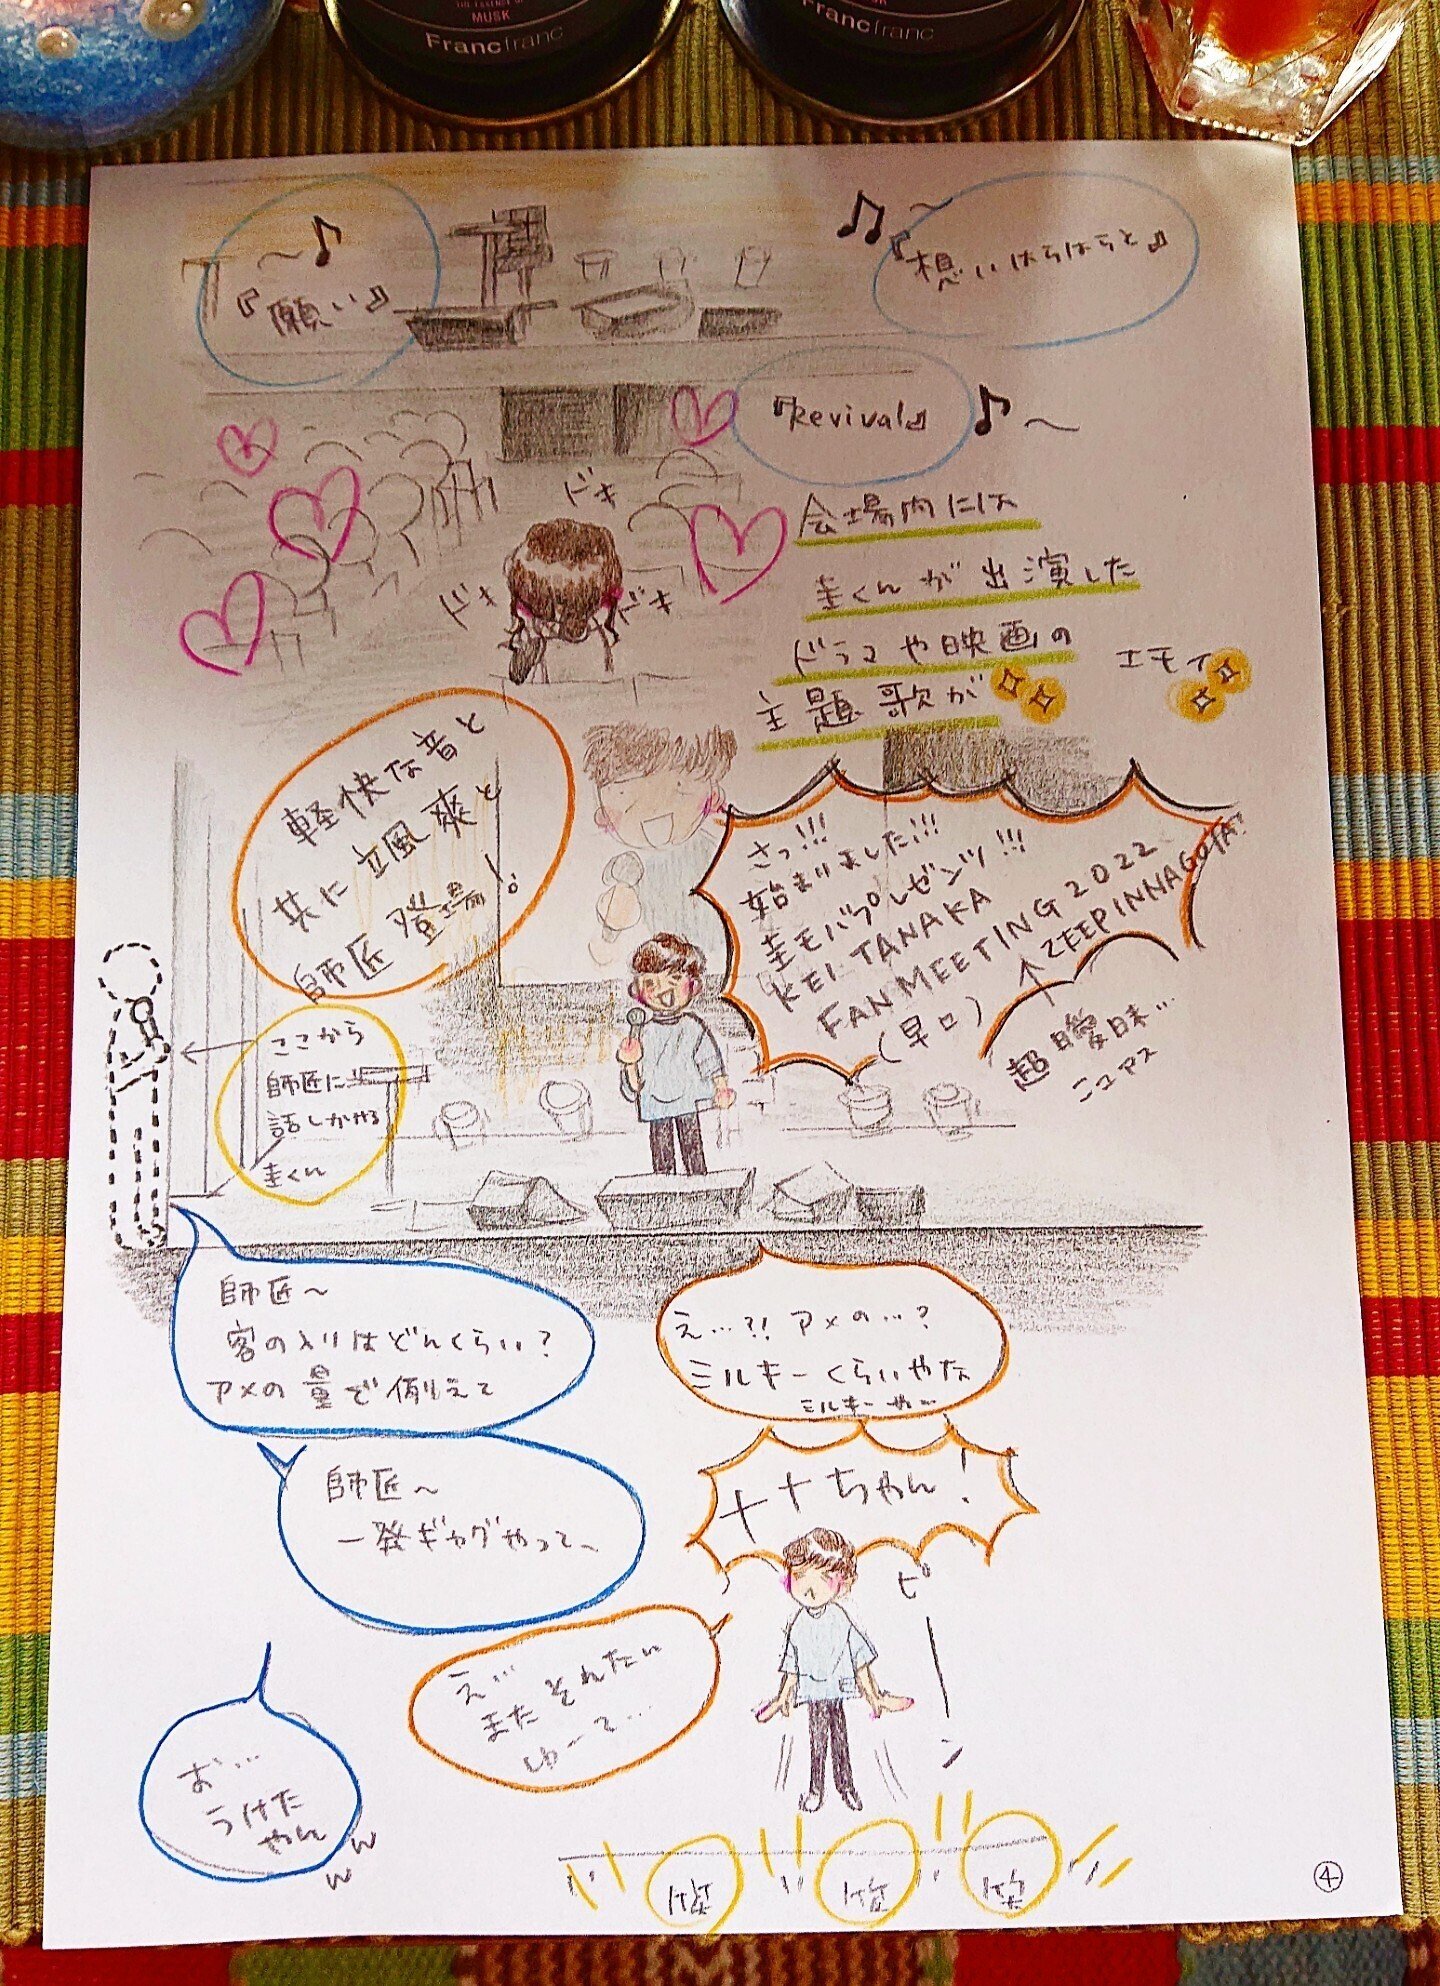 THE ESSENCE OF
MUSK
Francfranc
Francfranc
～♪
『願い』
♪～
『想いはらはらと』
『Revival』♪～
ドキ
ドキ
ドキ
会場内には
圭くんが出演した
ドラマや映画の
主題歌が
エモイ
軽快な音と
共に颯爽と
師匠登場!。
さっ!!!
始まりました!!!
圭モバプレゼンツ!!!
KEI TANAKA
FAN MEETING 2022
ZEEP IN NAGOYA!
(早口)
↑
超曖昧…
ニュアンス
ここから
師匠に
話しかける
圭くん
師匠～
客の入りはどんくらい?
アメの量で例えて
え…?!アメの…?
ミルキーくらいやな
ミルキーや…
師匠～
一発ギャグやって、
ナナちゃん!
ピーン
え…
またそんなん
ゆーて…
お…
うけた
やん
w
w
笑
笑
笑
④